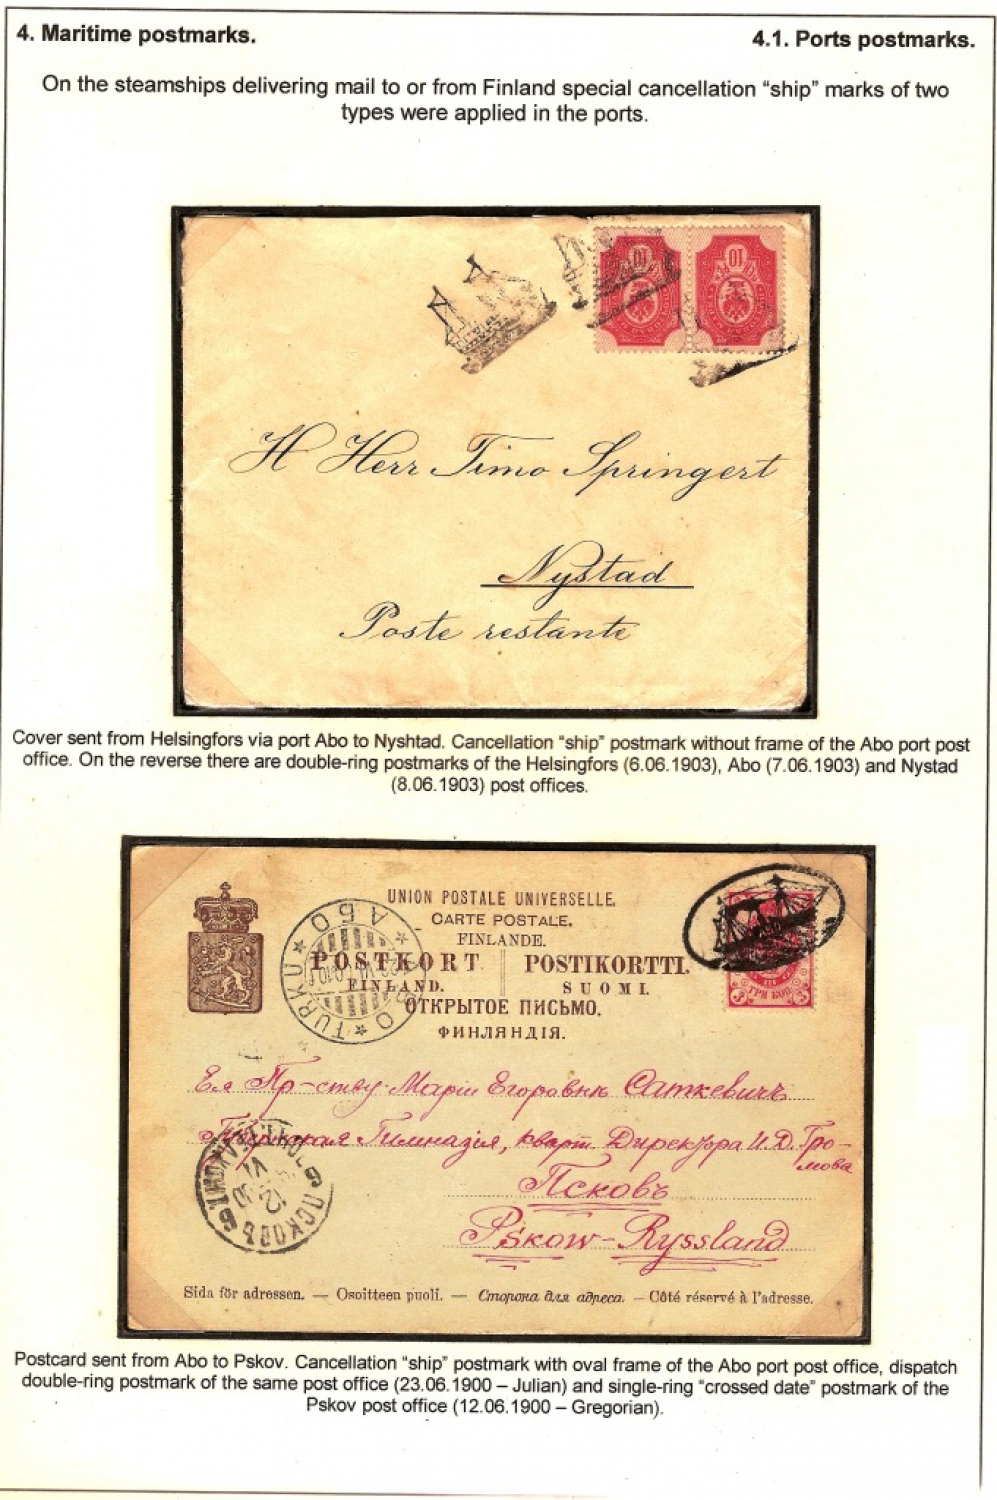 4. Maritime postmarks.
4.1. Ports postmarks.
On the steamships delivering mail to or from Finland special cancellation “ship” marks of two
types were applied in the ports.
10
10
H Herr Timo Springert
Nystad
Poste restante
Cover sent from Helsingfors via port Abo to Nyshtad. Cancellation “ship” postmark without frame of the Abo port post
office. On the reverse there are double-ring postmarks of the Helsingfors (6.06.1903), Abo (7.06.1903) and Nystad
(8.06.1903) post offices.
UNION POSTALE UNIVERSELLE.
CARTE POSTALE.
FINLANDE.
POSTKORT POSTIKORTTI.
FINLAND. SUOMI.
ОТКРЫТОЕ ПИСЬМО.
ФИНЛЯНДІЯ.
АБО
TURKU
3 ТРИ КОП 3
Ея Пр-ству Марiи Егоровнѣ Саткевичъ
Гимназiя, кварт. Директора И. Д. Гро-
мова
Псковъ
Pskow-Ryssland
ПСКОВЪ
12
VI
Sida för adressen. — Osoitteen puoli. — Сторона для адреса. — Côté réservé à l'adresse.
Postcard sent from Abo to Pskov. Cancellation “ship” postmark with oval frame of the Abo port post office, dispatch
double-ring postmark of the same post office (23.06.1900 – Julian) and single-ring “crossed date” postmark of the
Pskov post office (12.06.1900 – Gregorian).